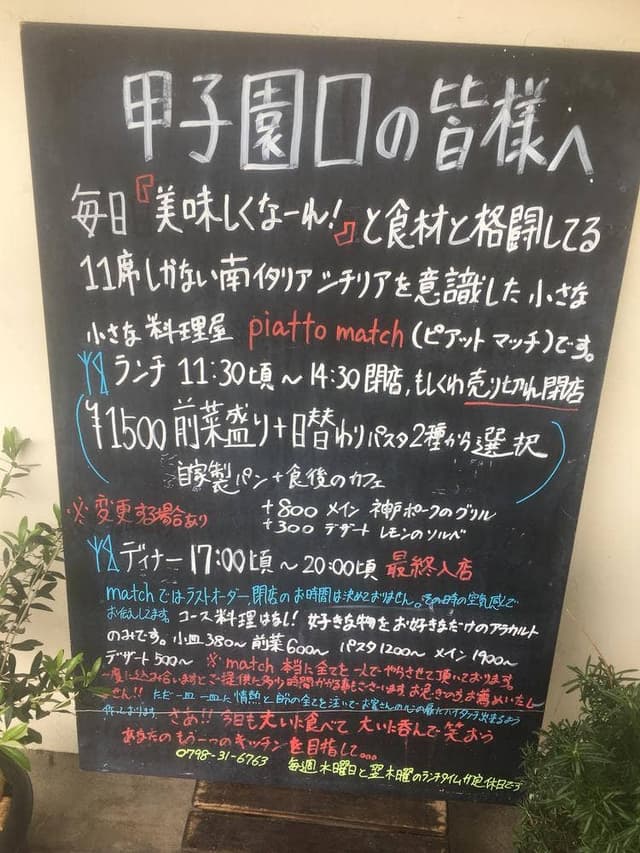 甲子園口の皆様へ
毎日『美味しくなーれ!』と食材と格闘してる
11席しかない南イタリアシチリアを意識した小さな
小さな料理屋 piatto match (ピアット マッチ)です。
ランチ 11:30頃〜14:30閉店,もしくわ売り切れ閉店
¥1500 前菜盛り+日替わりパスタ2種から選択
自家製パン+食後のカフェ
+800 メイン 神戸ポークのグリル
※変更する場合あり
+300 デザート レモンのソルベ
ディナー 17:00頃〜20:00頃 最終入店
matchではラストオーダー,閉店のお時間は決めておりません。その日時の空気感んで
お伝えしてます。コース料理はなし! 好きな物をお好きなだけのアラカルト
のみです。小皿380〜 前菜600〜 パスタ1200〜 メイン1900〜
デザート500〜 ※match 本当に全てを一人でやらさせて頂いております。
一度に込み合いますとご提供に多少時間がかかる事もございます お急ぎの方お薦めいたし
ません!! ただ一皿一皿に情熱と
さぁ!! 今日も大いに食べて 大いに呑んで 笑おう
あなたのもう一つのキッチンを目指して。。。
0798-31-6763 毎週水曜日と翌木曜のランチタイムが定休日です